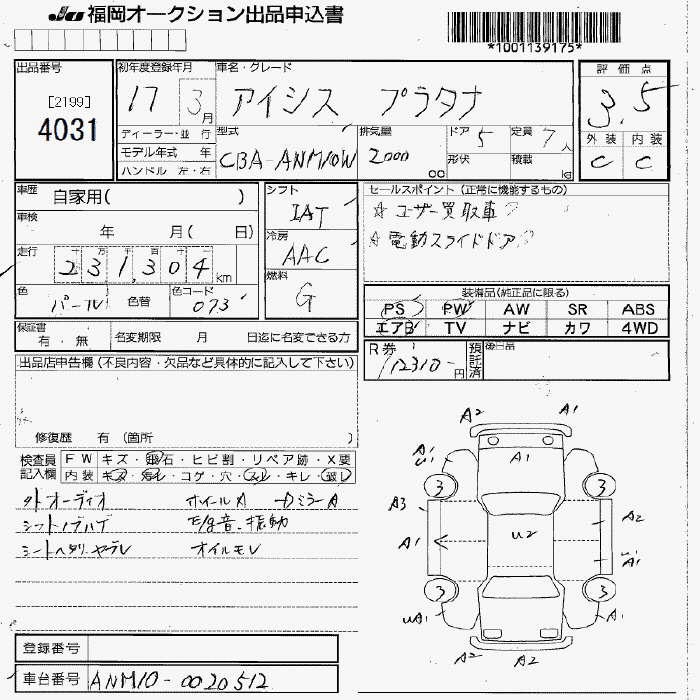 JU 福岡オークション出品申込書
*1001139175*
出品番号
[2199]
4031
初年度登録年月
17 3月
車名・グレード
アイシス プラタナ
評価点
3.5
ディーラー・並 行
モデル年式 年
ハンドル 左・右
型式
CBA-ANM10W
排気量
2000 cc
ドア 5
形状
定員 7人
積載 kg
外装 内装
C C
車歴 自家用( )
車検 年 月( 日)
走行 十 万 千 百 十 一
231,304 km
色 パール 色替 色コード 073
シフト
IAT
冷房
AAC
燃料
G
セールスポイント (正常に機能するもの)
☆ ユーザー買取車
☆ 電動スライドドア
装備品(純正品に限る)
PS PW AW SR ABS
エアB TV ナビ カワ 4WD
保証書 有・無 名変期限 月 日迄に名変できる方
R券 12310-円 預託済 後日品
出品店申告欄(不良内容・欠品など具体的に記入して下さい)
修復歴 有 (箇所 )
検査員記入欄
FW キズ・飛石・ヒビ割・リペア跡・X要
内装 キズ・汚レ・コゲ・穴・スレ・キレ・破レ
外オーディオ ホイールA DミラーA
シフトノブハゲ 異音、振動
シートヘタリ、ヤブレ オイルモレ
登録番号
車台番号 ANM10-0020512
A2 A1
A1
U1
A1
A1
3 3
A3 A2
A1 U2
U1
A1
3 3
UA1 A1
A2 A2